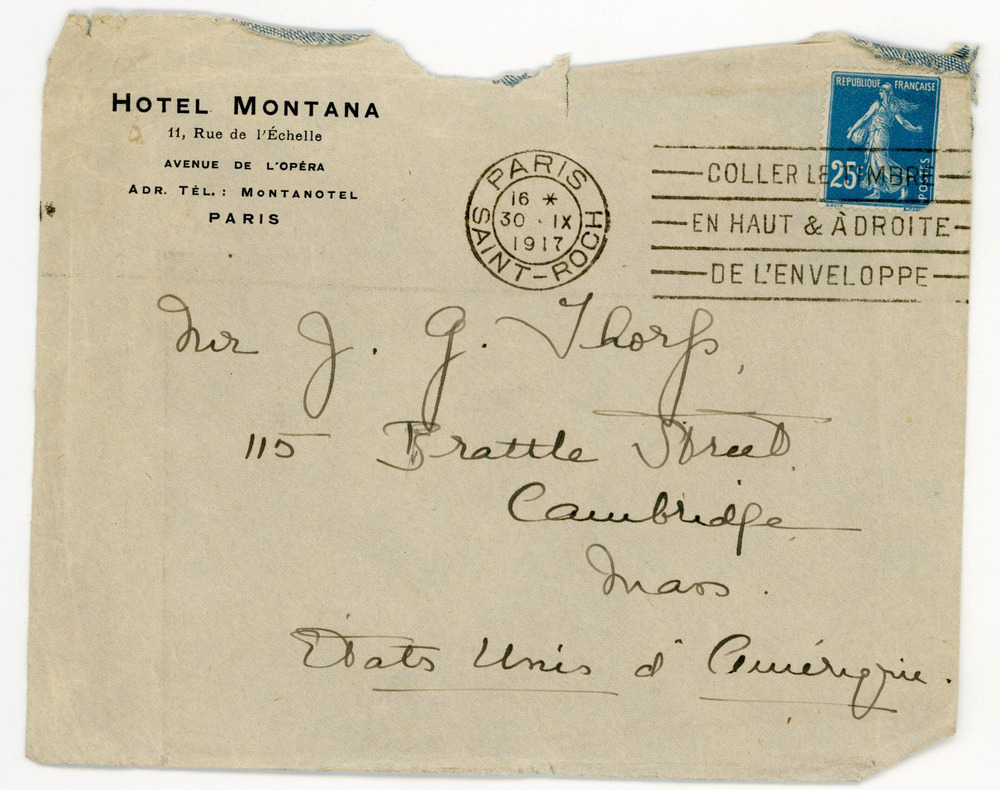 HOTEL MONTANA
11, Rue de l'Échelle
AVENUE DE L'OPÉRA
ADR. TÉL. : MONTANOTEL
PARIS
PARIS
16 *
30 · IX
1917
SAINT-ROCH
REPUBLIQUE FRANÇAISE
25c
POSTES
COLLER LE TIMBRE
EN HAUT & À DROITE
DE L'ENVELOPPE
Mr J. G. Thorp,
115 Brattle Street
Cambridge
Mass.
Etats Unis d'Amérique.